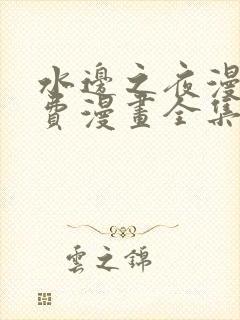 水邊之夜漫
費漫畫全集
雲之錦